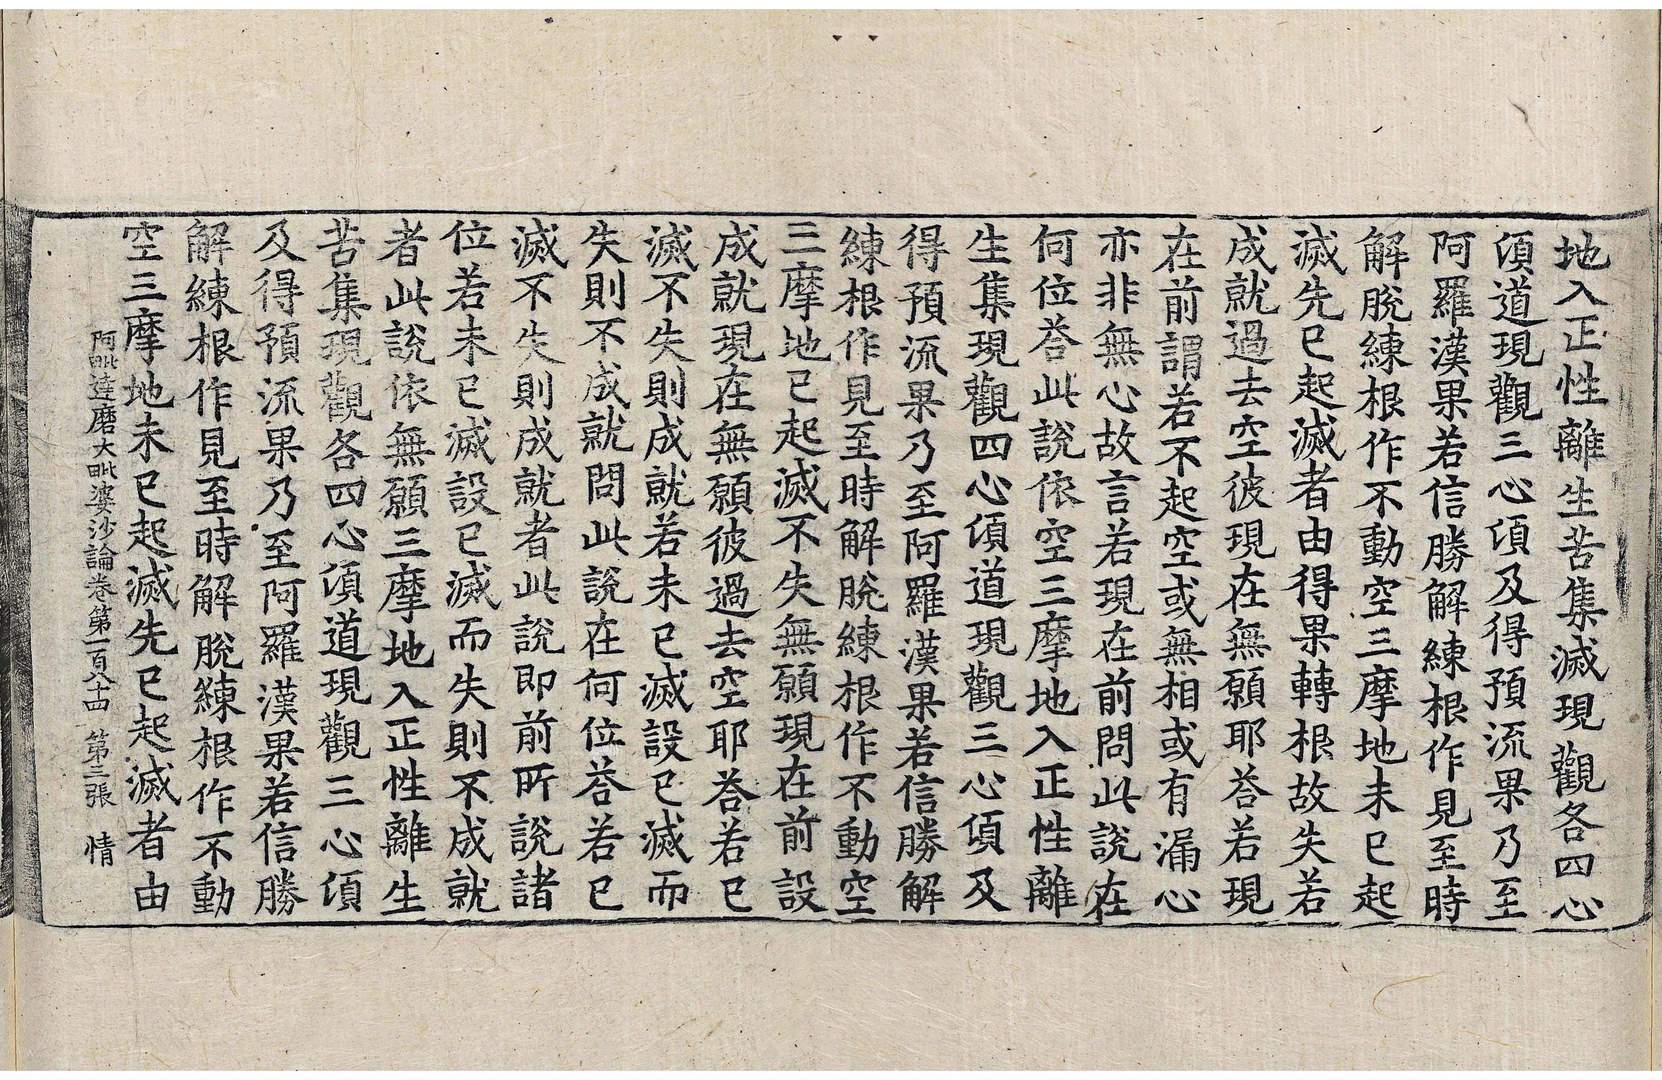 地入正性離生苦集滅現觀各四心
湏道現觀三心湏及得預流果乃至
阿羅漢果若信勝解練根作見至時
解脫練根作不動空三摩地未已起
滅先已起滅者由得果轉根故失若
成就過去空彼現在無願耶荅若現
在前謂若不起空或無相或有漏心
亦非無心故言若現在前問此說在
何位荅此說依空三摩地入正性離
生集現觀四心湏道現觀三心湏及
得預流果乃至阿羅漢果若信勝解
練根作見至時解脫練根作不動空
三摩地已起滅不失無願現在前設
成就現在無願彼過去空耶荅若已
滅不失則成就若未已滅設已滅而
失則不成就問此說在何位荅若已
滅不失則成就者此說即前所說諸
位若未已滅設已滅而失則不成就
者此說依無願三摩地入正性離生
苦集現觀各四心湏道現觀三心湏
及得預流果乃至阿羅漢果若信勝
解練根作見至時解脫練根作不動
空三摩地未已起滅先已起滅者由
阿毗達磨大毗婆沙論卷第一百八十四 第三張 情